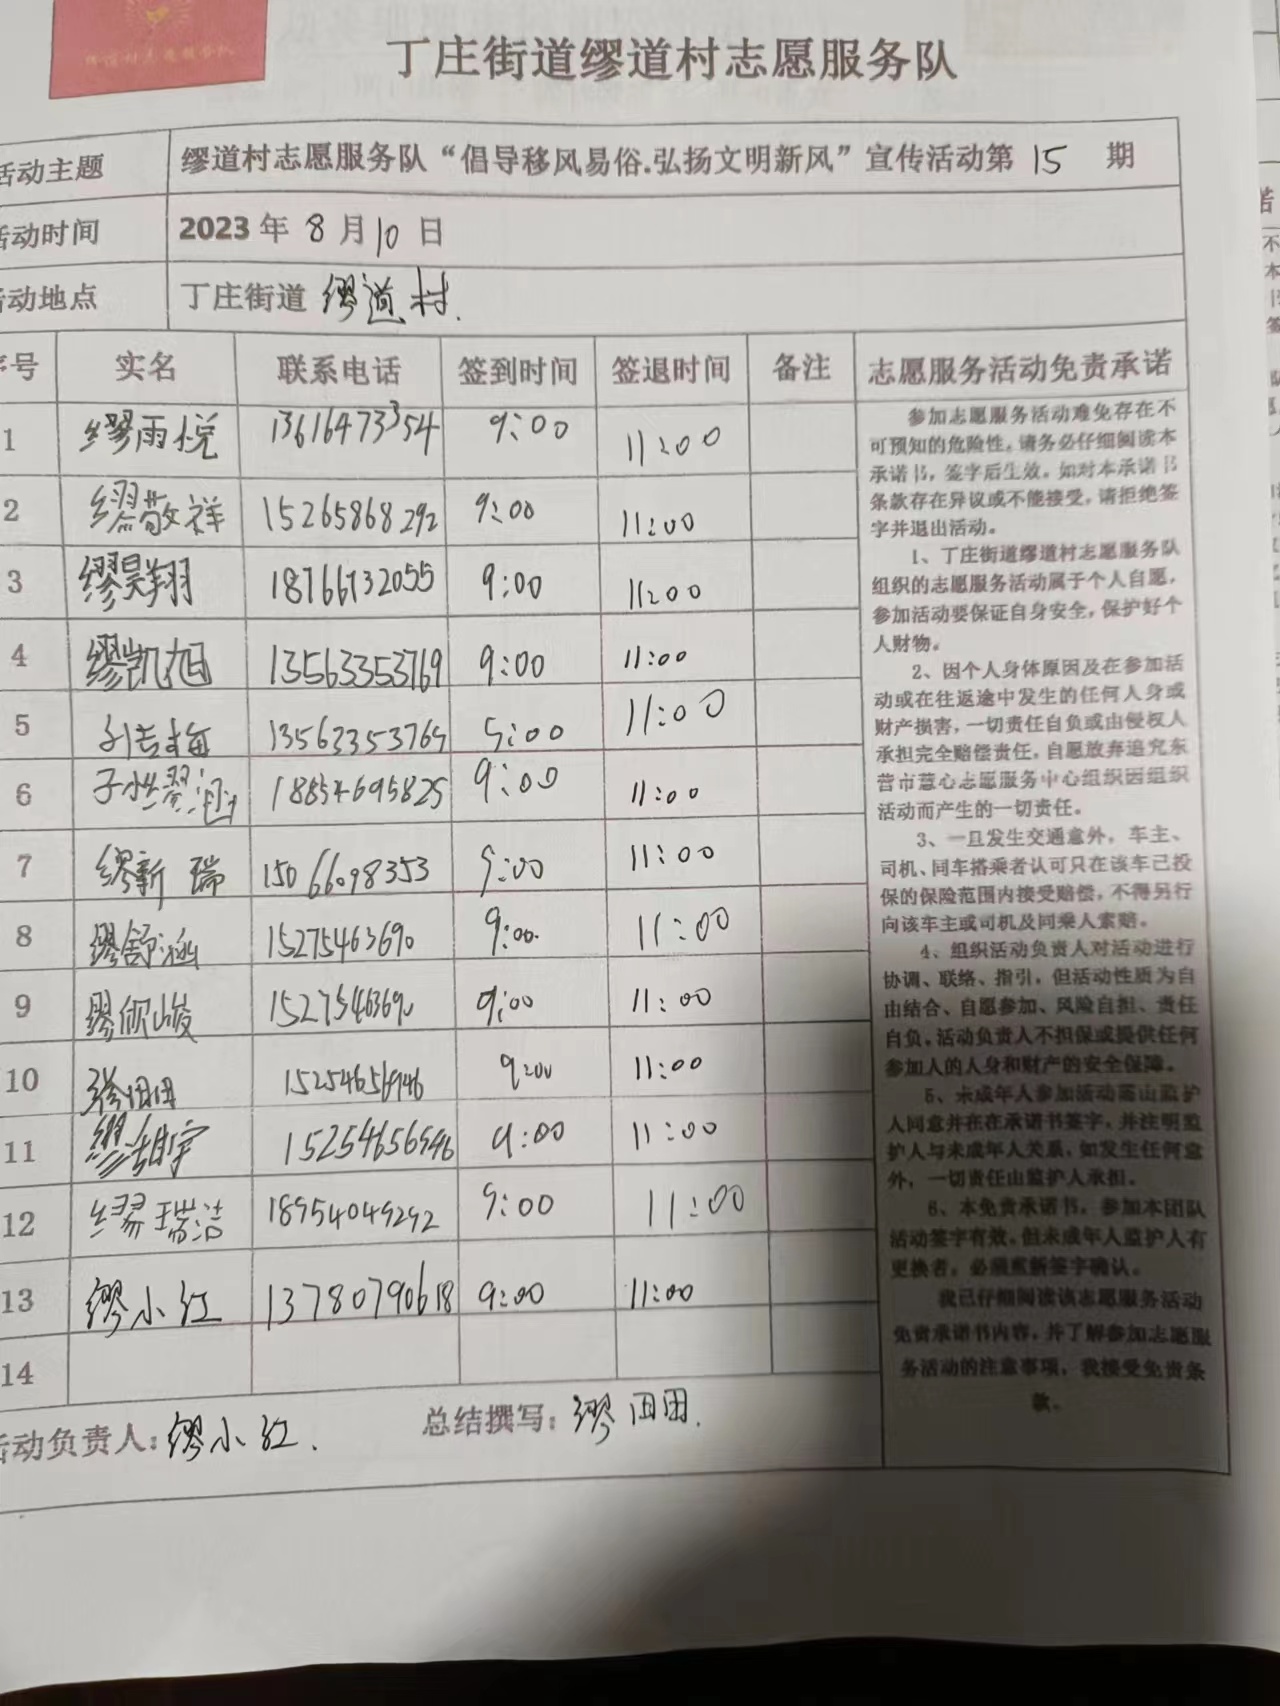 丁庄街道缪道村志愿服务队
活动主题 缪道村志愿服务队“倡导移风易俗.弘扬文明新风”宣传活动第 15 期
活动时间 2023 年 8 月 10 日
活动地点 丁庄街道 缪道村.
序号 实名 联系电话 签到时间 签退时间 备注
1 缪雨悦 13616473354 9:00 11:00
2 缪敬祥 15265868292 9:00 11:00
3 缪昊翔 18766732055 9:00 11:00
4 缪凯旭 13563353769 9:00 11:00
5 13563353769 9:00 11:00
6 18854695825 9:00 11:00
7 缪新瑞 15066098353 9:00 11:00
8 缪舒涵 15275463690 9:00 11:00
9 缪硕峻 15275463690 9:00 11:00
10 张田田 15254656946 9:00 11:00
11 15254656946 9:00 11:00
12 缪瑞洁 18954049292 9:00 11:00
13 缪小红 13780790618 9:00 11:00
14
活动负责人：缪小红. 总结撰写：缪田田.
志愿服务活动免责承诺
参加志愿服务活动难免存在不
可预知的危险性，请务必仔细阅读本
承诺书，签字后生效。如对本承诺书
条款存在异议或不能接受，请拒绝签
字并退出活动。
1、丁庄街道缪道村志愿服务队
组织的志愿服务活动属于个人自愿，
参加活动要保证自身安全，保护好个
人财物。
2、因个人身体原因及在参加活
动或在往返途中发生的任何人身或
财产损害，一切责任自负或由侵权人
承担完全赔偿责任，自愿放弃追究东
营市慧心志愿服务中心组织因组织
活动而产生的一切责任。
3、一旦发生交通意外，车主、
司机、同车搭乘者认可只在该车已投
保的保险范围内接受赔偿，不得另行
向该车主或司机及同乘人索赔。
4、组织活动负责人对活动进行
协调、联络、指引，但活动性质为自
由结合、自愿参加、风险自担、责任
自负，活动负责人不担保或提供任何
参加人的人身和财产的安全保障。
5、未成年人参加活动需由监护
人同意并在在承诺书签字，并注明监
护人与未成年人关系，如发生任何意
外，一切责任由监护人承担。
6、本免责承诺书，参加本团队
活动签字有效，但未成年人监护人有
更换者，必须重新签字确认。
我已仔细阅读该志愿服务活动
免责承诺书内容，并了解参加志愿服
务活动的注意事项，我接受免责条
款。